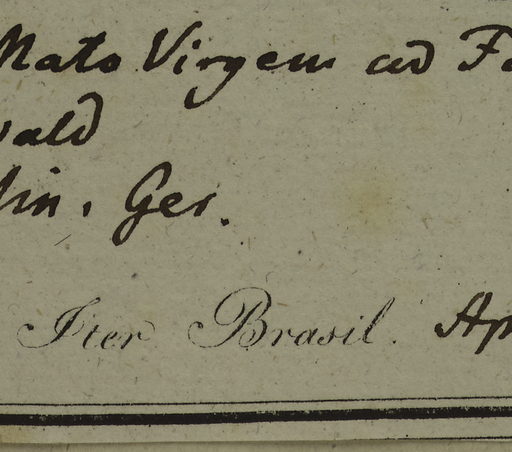 Mato Virgem ad Fa
wald
Min. Ger.
Iter Brasil. Ap